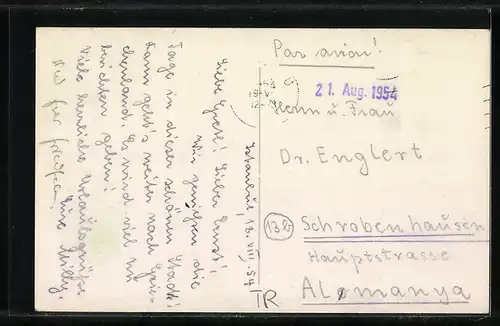 Par avion!
21. Aug. 1954
Herrn u. Frau
Dr. Englert
(13b)
Schrobenhausen
Hauptstrasse
Alemanya
TR
Istanbul, 18. VIII. 54
Liebe Gretl! Lieber Ernst!
Wir genießen die
Tage in dieser schönen Stadt!
Dann geht's weiter nach Grie-
chenland. Es wird viel zu
berichten geben!
Viele herzliche Urlaubsgrüße
Eure Milly.